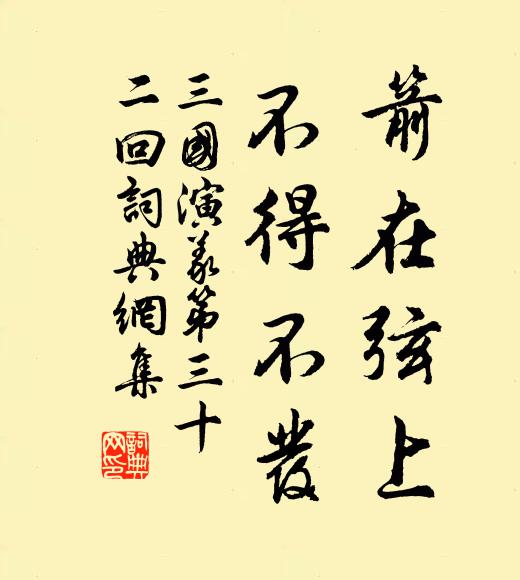 箭在弦上
不得不發
三國演義第三十
二回詞典網集
詞典
网印